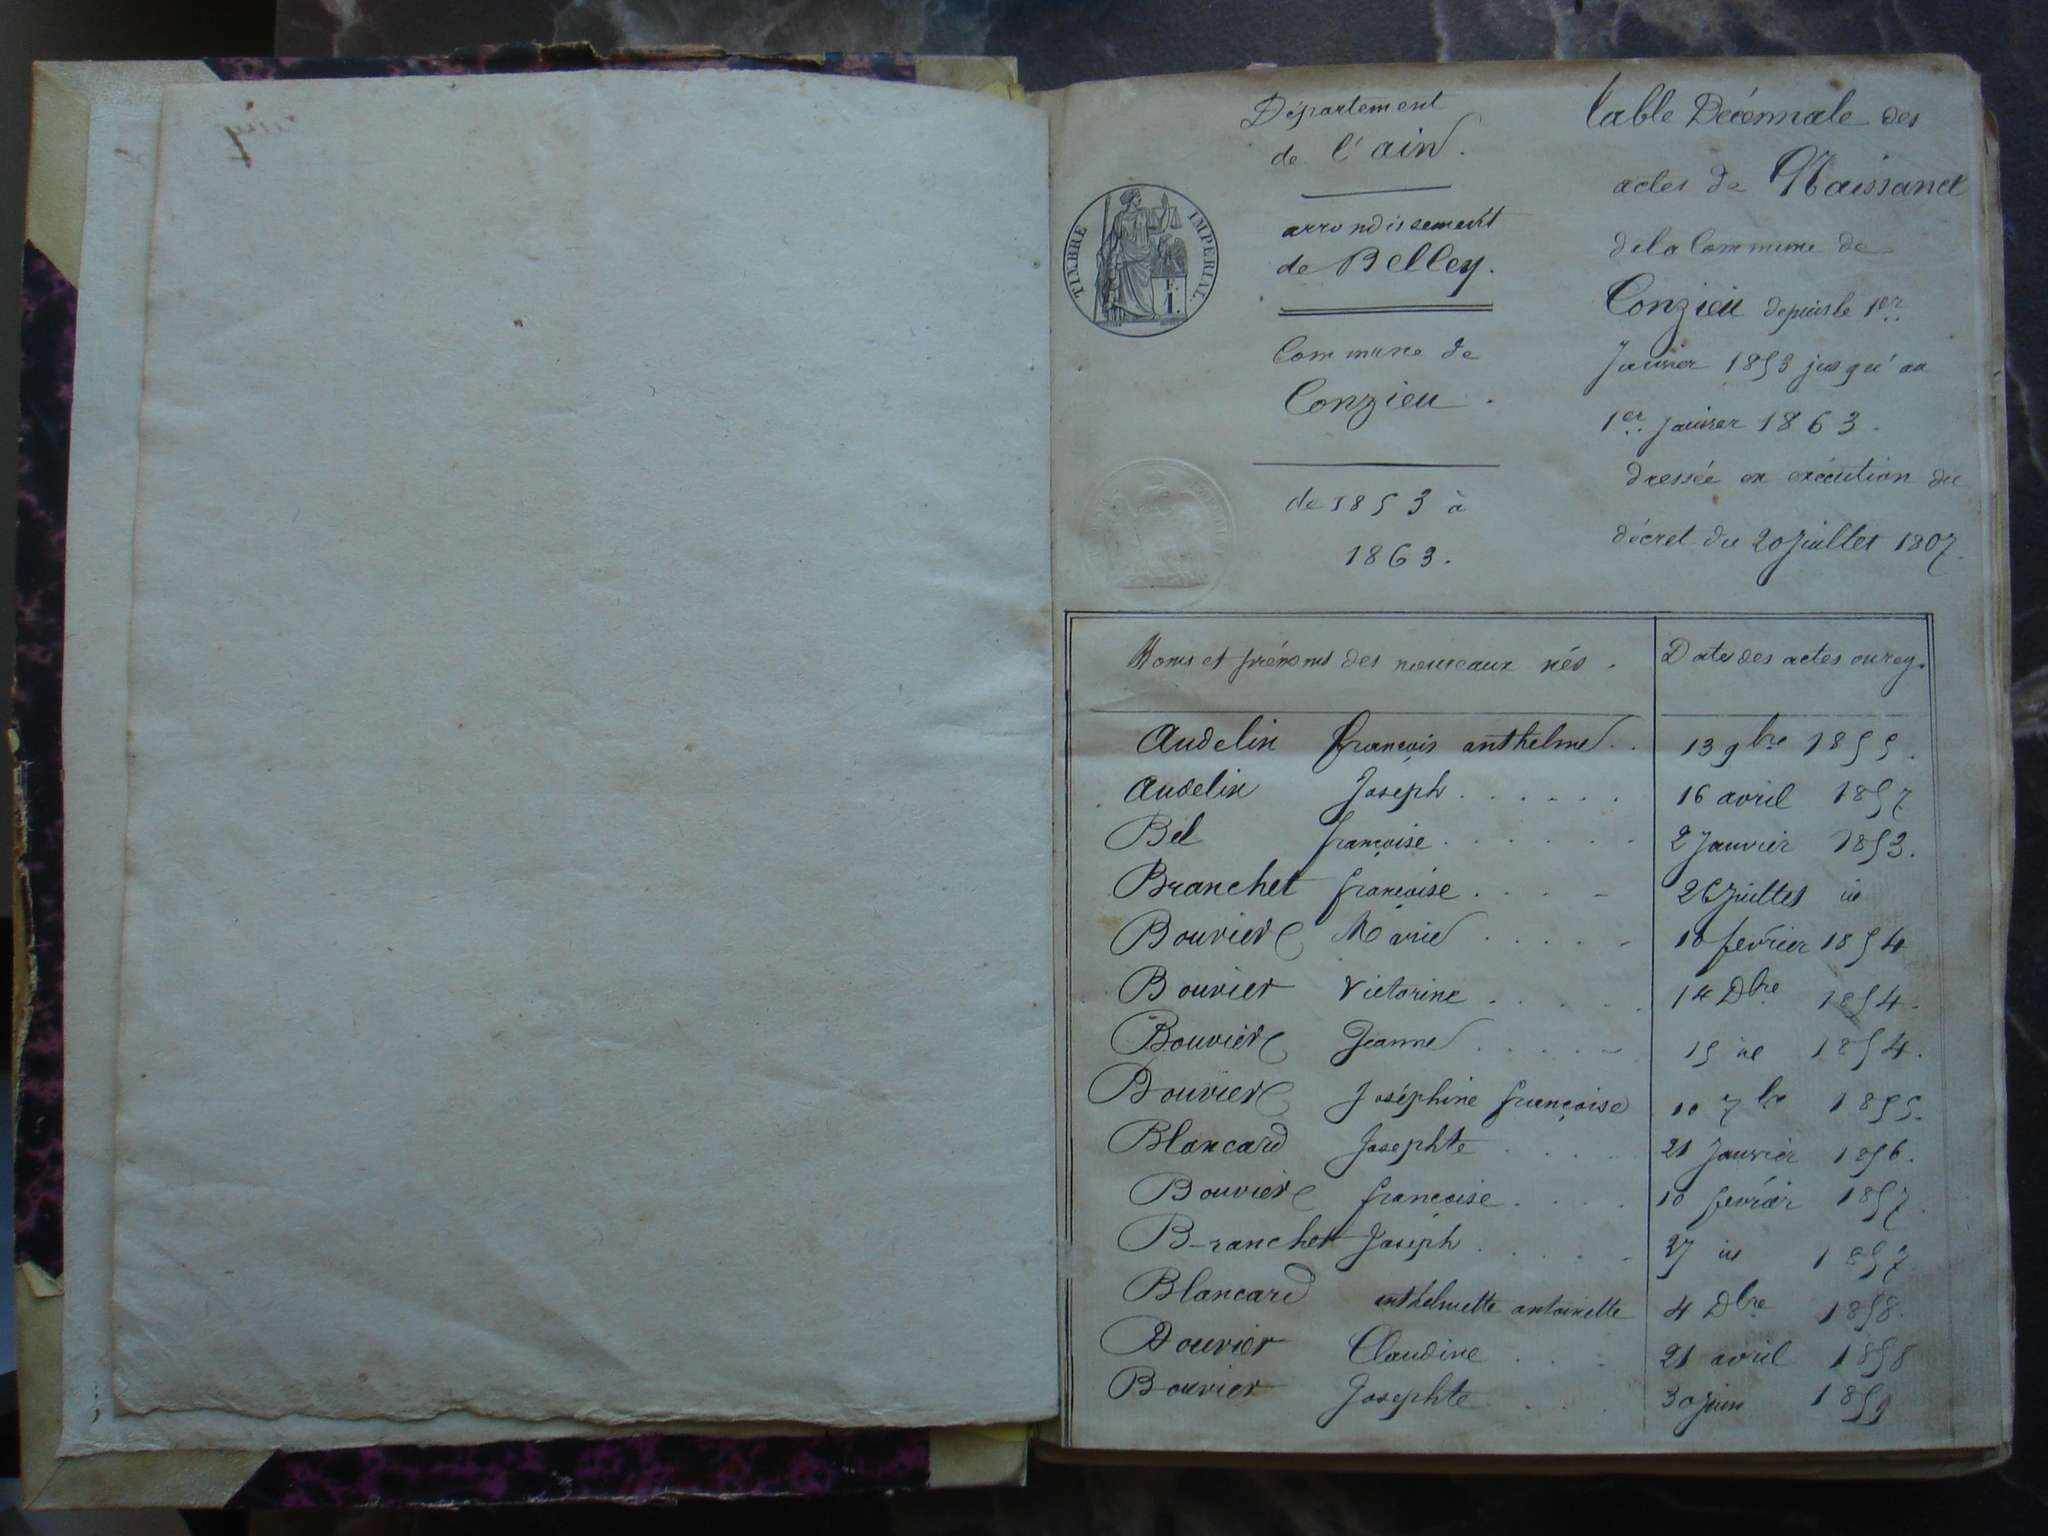 Département
de l'ain.
TIMBRE IMPERIAL
arrondissement
de Belley.
Commune de
Conzieu.
de 1853 à
1863.
table Décennale des
actes de Naissance
de la Commune de
Conzieu depuis le 1er
Janvier 1853 jusqu'au
1er janvier 1863.
dressée en exécution du
décret du 20 Juillet 1807.
Noms et prénoms des nouveaux nés. Date des actes ou reg.
Audelin françois anthelme.. 13 9bre 1855.
Audelin Joseph...... 16 avril 1857
Bel françoise...... 2 Janvier 1853.
Branchet françoise.... 26 Juillet id
Bouvier Marie..... 10 fevrier 1854
Bouvier Victorine.... 14 Dbre 1854.
Bouvier Jeanne..... 15 id 1854.
Bouvier Joséphine françoise 10 7bre 1855.
Blancard Josephte.... 21 Janvier 1856.
Bouvier françoise.... 10 fevrier 1857.
Branchet Joseph..... 27 id 1857
Blancard anthelmette antoinette 4 Dbre 1858.
Bouvier Claudine... 21 avril 1858
Bouvier Josephte... 30 juin 1859